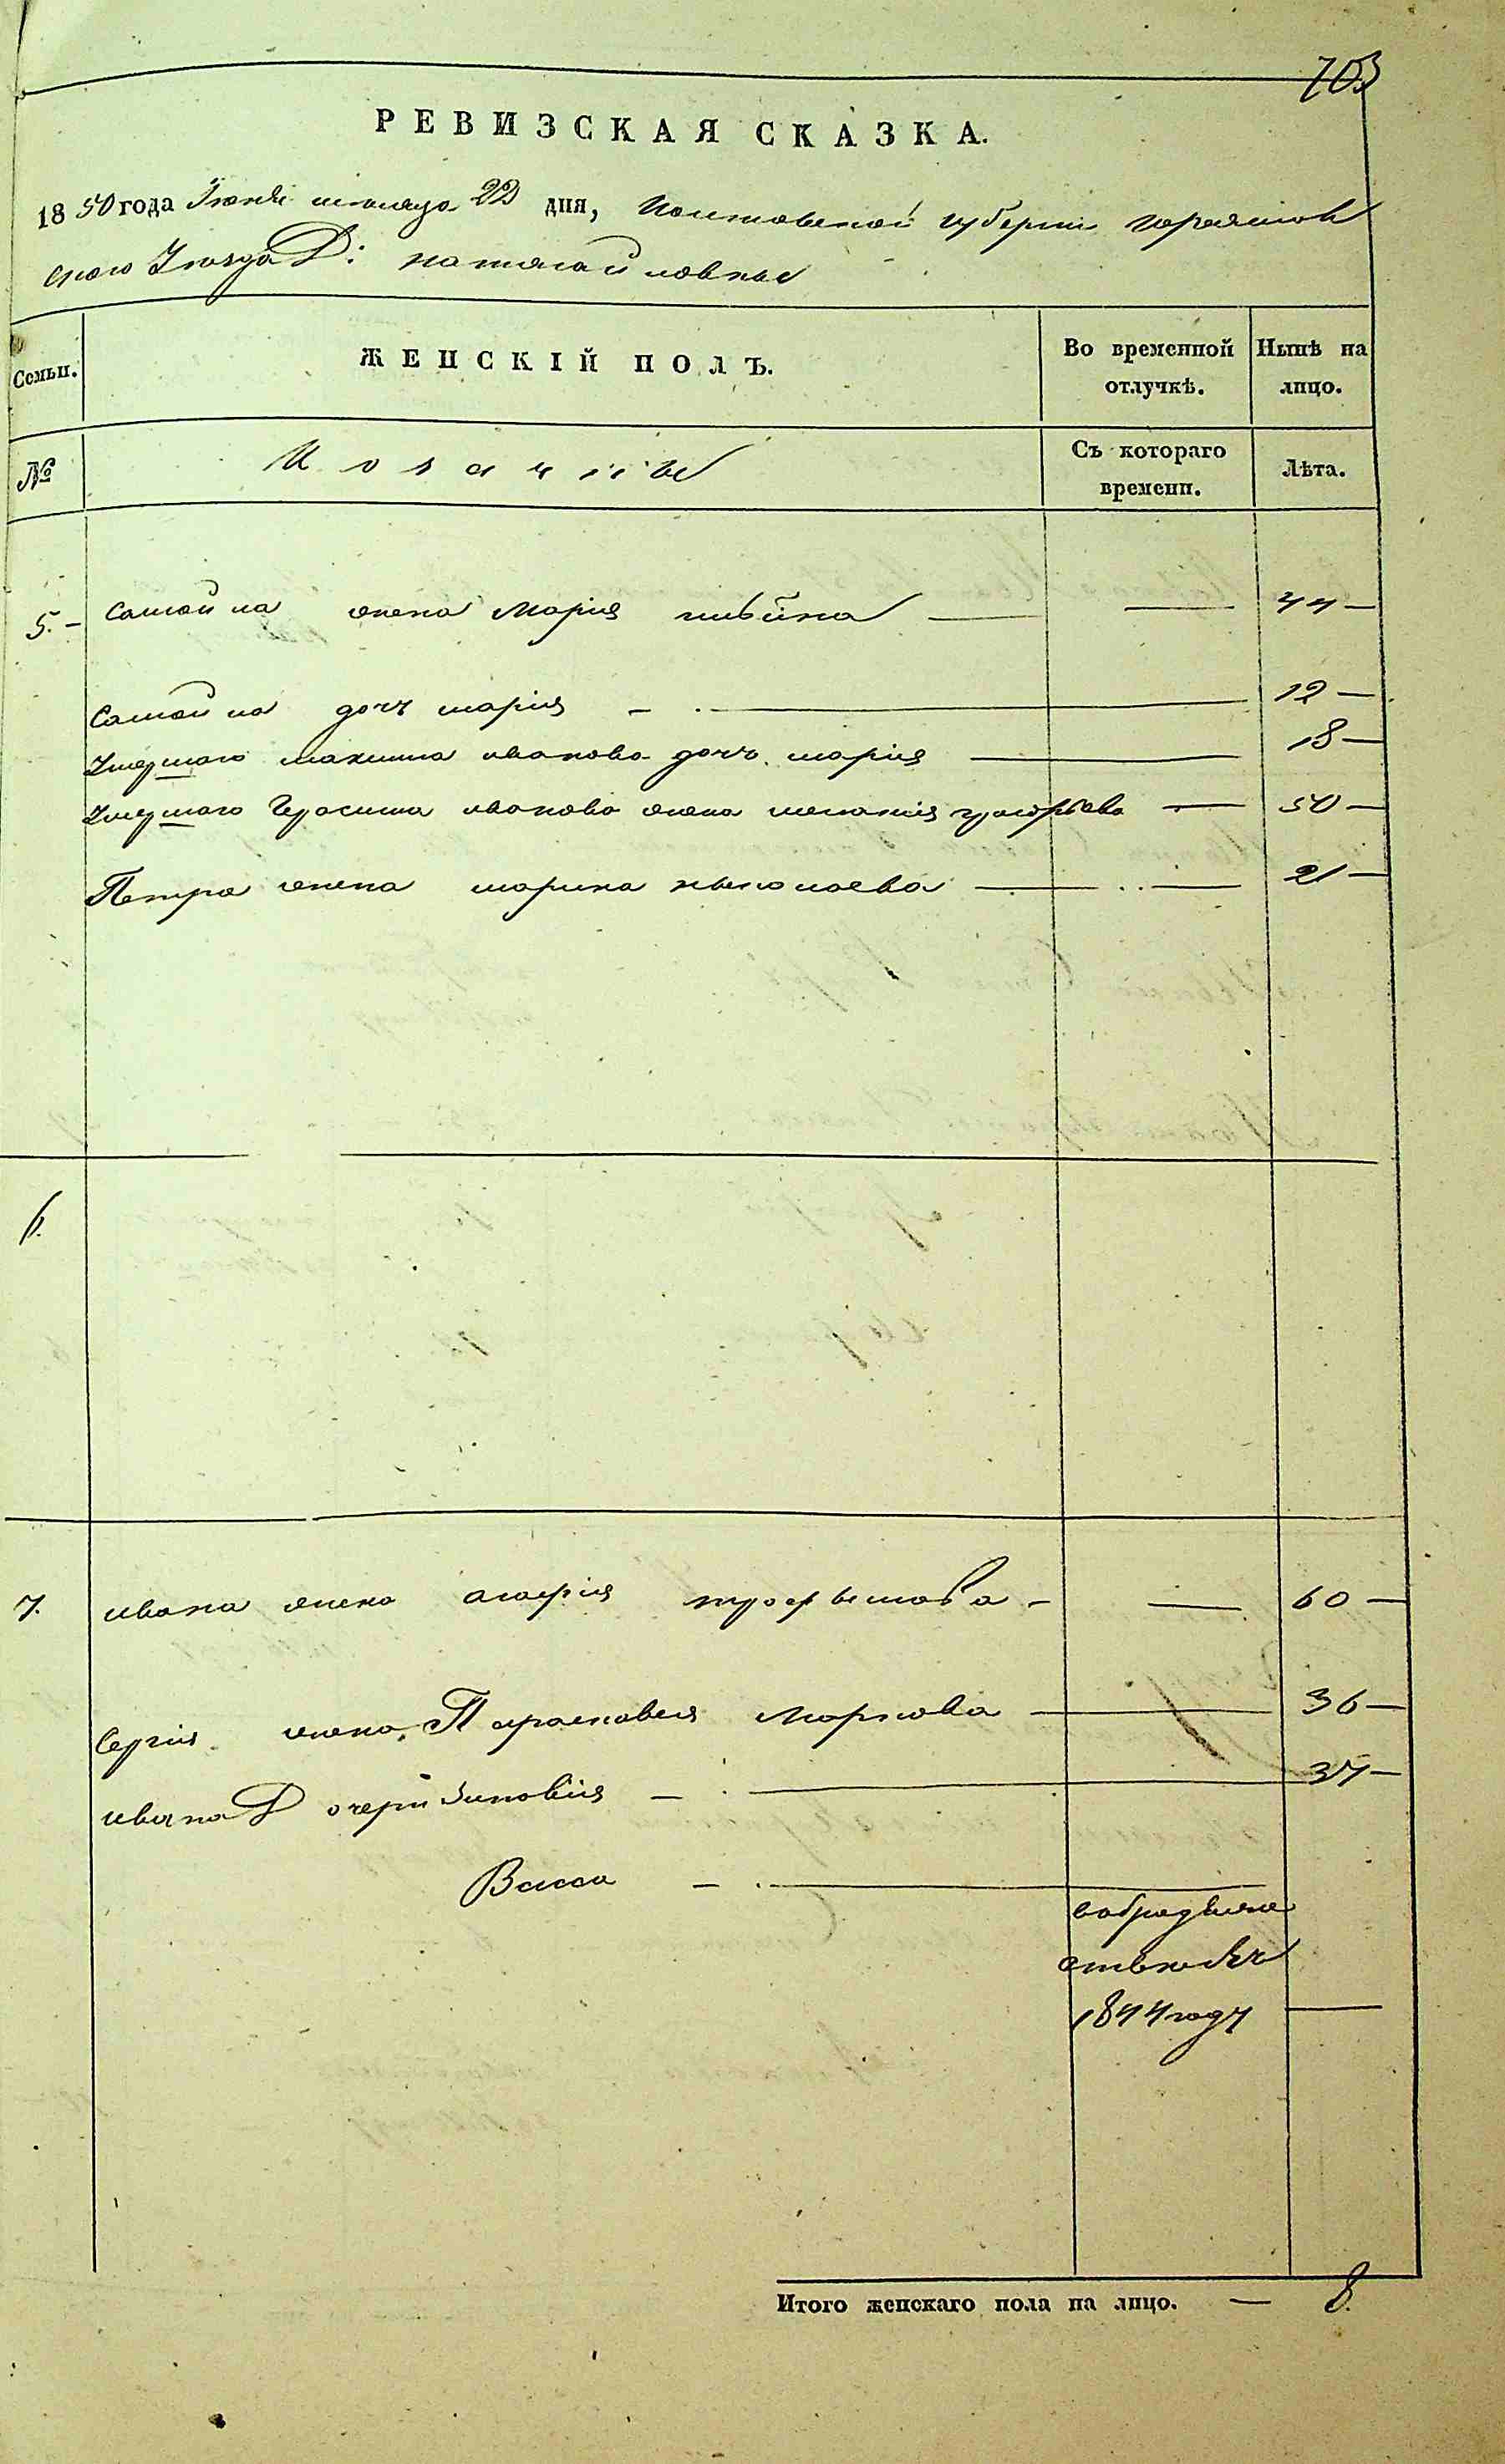 703
РЕВИЗСКАЯ СКАЗКА.
1850 года Июня месяца 22 дня, Полтавской губернии Хорольск
ского Уезда Д:
Семьи. ЖЕНСКІЙ ПОЛЪ. Во временной отлучкѣ. Нынѣ на лицо.
№ Козачки Съ котораго времени. Лѣта.
5. – Самойла жена Марія — — 44 —
Самойла дочь марія — 12 —
Умершаго максима иванова дочь марія — 18 —
Умершаго Герасима иванова жена меланія григорьева — 50 —
Петра жена марина николаева — — 21 —
6.
7. ивана жена агафія трофымова – — 60 —
Сергія жена Парасковея Маркова — 36 —
ивана Дочери Зиновія — 37 —
Васса —
вобродяже
стве
1844 году —
Итого женскаго пола на лицо. — 8.